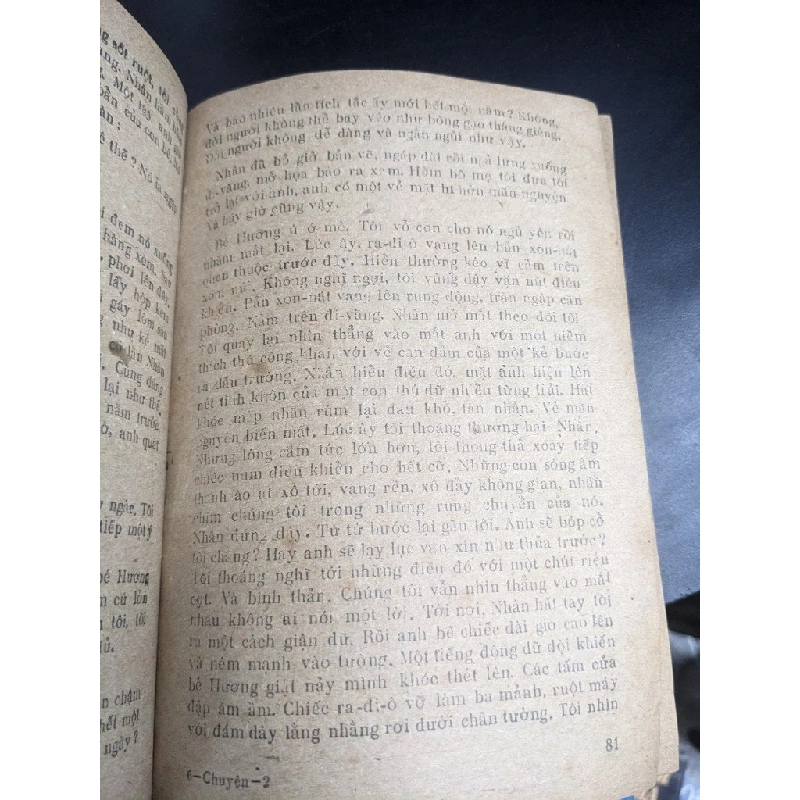 g sốt ruột, tôi
ang. Nhân là n
Một tay anh
bản của con bé
ân :
ế thế ? Nó là
i đem nó xuống
hằng xem.
phơi lên dây
lấy hộp kem
i gáy lớn sau
g như kẻ mất
cu lận Nhân
Cũng đúng
lại như thế,
năm trước.
ờ, anh quát
y ngốc. Tôi
tiếp một ý
bé Hương
m cứ lồn
tôi, tôi
ủ.
n chậm
hết một
ngây ?
Và bao nhiêu lần tích tắc ấy mới hết một năm ? Không,
đời người không thể bay vào như bông gạo tháng giêng.
Đời người không dễ dàng và ngắn ngủi như vậy.
Nhân đã bỏ giở bản vẽ, ngáp dài rồi ngả lưng xuống
đi-văng, mở họa báo ra xem. Hôm bố mẹ tôi đưa tôi
trở lại với anh, anh có một vẻ mặt hí hởn mãn nguyện
và bây giờ cũng vậy.
Bé Hương ú ớ mê. Tôi vỗ con cho nó ngủ yên rồi
nhắm mắt lại. Lúc ấy, ra-đi-ô vang lên bản xon-nát
quen thuộc trước đây. Hiền thường kéo vĩ cầm trên
xon nứa. Không nghĩ ngợi, tôi vùng dậy vặn nút điều
khiển. Bản xon-nát vang lên rung động, tràn ngập căn
phòng. Nằm trên đi-văng, Nhân mở mắt theo dõi tôi
Tôi quay lại nhìn thẳng vào mắt anh với một niềm
thích thú công khai, với vẻ can đảm của một kẻ bước
ra đấu trường. Nhân hiểu điều đó, mắt ánh hiện lên
nét tinh khôn của một con thú dữ nhiều từng trải. Hai
khóe mép nhăn rúm lại đau khổ, tàn nhẫn. Vẻ mãn
nguyện biến mất. Lúc ấy tôi thoáng thương hại Nhân.
Nhưng lòng căm tức lớn hơn, tôi thong thả xoay tiếp
chiếc núm điều khiển cho hết cỡ. Những con sóng âm
thanh ào ạt xô tới, vang rền, xô đẩy không gian, nhấn
chìm chúng tôi trong những rung chuyển của nó.
Nhân đứng dậy. Từ từ bước lại gần tôi. Anh sẽ bóp cổ
tôi chăng ? Hay anh sẽ lạy lục van xin như thủa trước ?
Tôi thoáng nghĩ tới những điều đó với một chút riễu
cợt. Và bình thản. Chúng tôi vẫn nhìn thẳng vào mắt
nhau không ai nói một lời. Tới nơi, Nhân hất tay tôi
ra một cách giận dữ. Rồi anh bê chiếc đài giơ cao lên
và ném mạnh vào tường. Một tiếng động dữ dội khiến
bé Hương giật nảy mình khóc thét lên. Các tấm cửa
đập ầm ầm. Chiếc ra-đi-ô vỡ làm ba mảnh, ruột máy
với đám dây lằng nhằng rơi dưới chân tường. Tôi nhìn
81
6—Chuyện—2